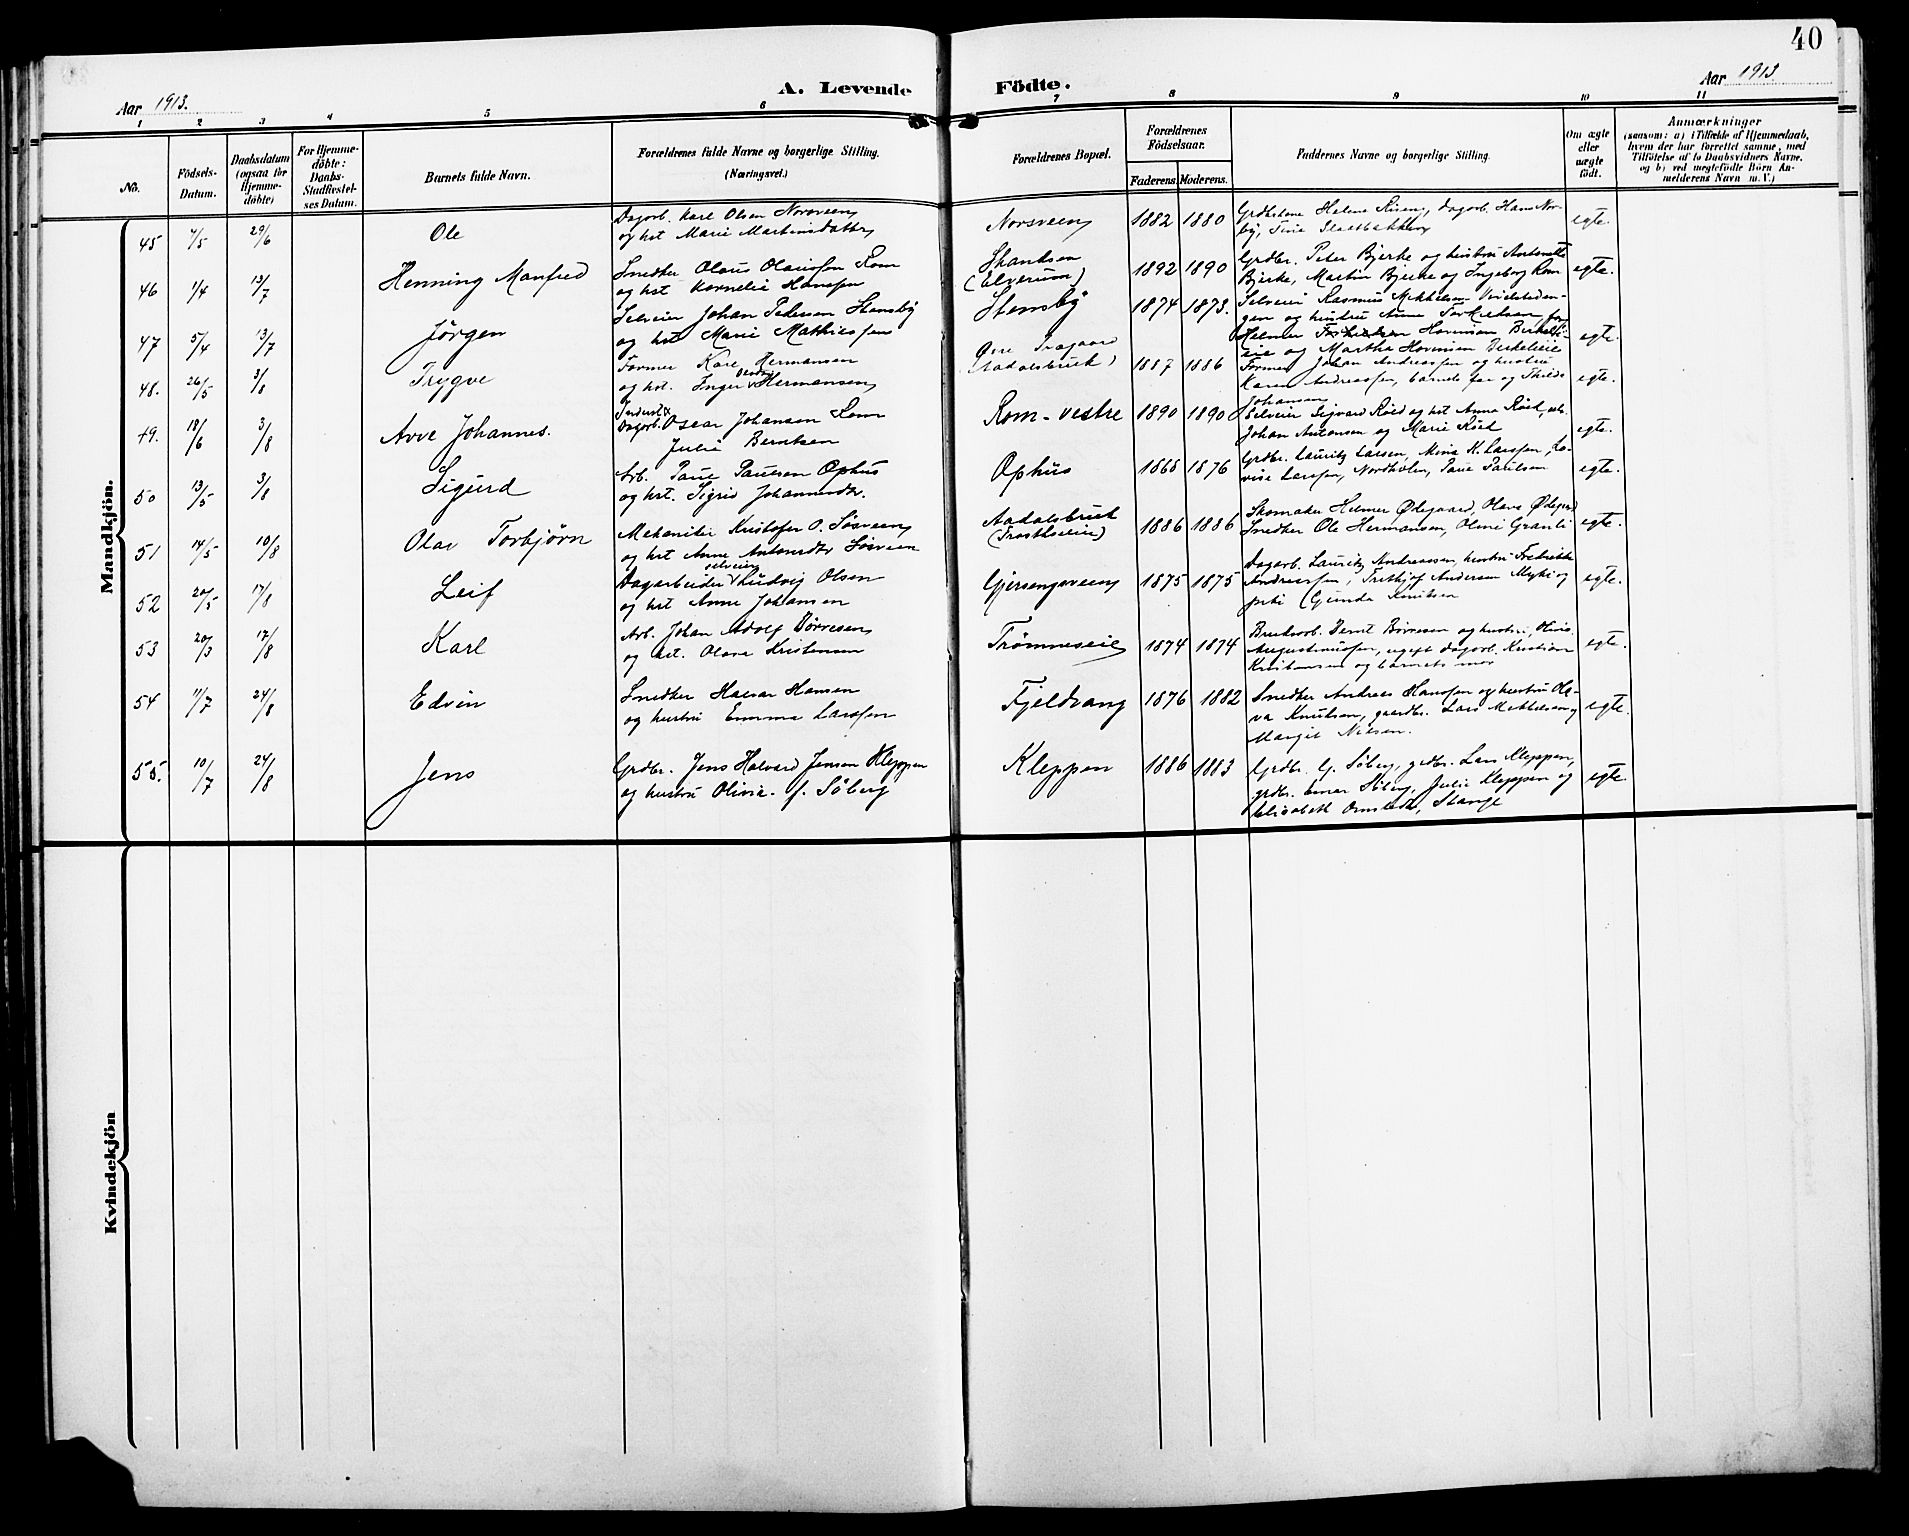 40
Aar 1913.
A. Levende Födte.
Aar 1913
1 2 3 4 5 6 7 8 9 10 11
No.
Födsels-
Datum.
Daabsdatum
(ogsaa for
Hjemme-
döbte)
For Hjemme-
döbte:
Daabs-
Stadfæstel-
ses Datum.
Barnets fulde Navn.
Forældrenes fulde Navne og borgerlige Stilling.
(Næringsvei.)
Forældrenes Bopæl.
Forældrenes
Födselsaar.
Faderens. Moderens.
Faddernes Navne og borgerlige Stilling.
Om ægte
eller
uægte
födt.
Anmærkninger
(saasom: a) i Tilfælde af Hjemmedaab,
hvem der har forrettet samme, med
Tilföielse af to Daabsvidners Navne,
og b) ved uegtefödte Börn An-
melderens Navn m. V.)
Mandkjön.
45 7/5 29/6 Ole
Dagarb. Karl Olsen Norsveen
og hst Marie Martinsdatter
Norsveen 1882 1880
Helene Risen, dagarb. Hans Nor-
by, Tina
egte.
46 1/4 13/7 Henning Manfred
Snedker Olaus Olaussen Rom
og hst Kornelia Hansen
Skandsen
(Elverum) 1892 1890
Grdbr. Peter Bjerke og hustru Antonette
Bjerke, Martin Bjerke og Ingeborg Rom
egte.
47 5/4 13/7 Jörgen
Selveier Johan Pedersen Stensby
og hst Marie Mathiesen
Stensby 1874 1873.
Selveier Rasmus Mikkelsen
gen og hustru Anne Torkelsen,
Helmer Hovensen Birkel
eie og Martha Hovensen Birkeleie
egte.
48. 26/5 3/8 Trygve
Former Karl Hermansen
og hst. Inger Hermansen
Aadalsbruk) 1887 1886
Former Johan Andreassen og hustru
Karen Andreassen, barnets far og Thilda
Johansen
egte.
49. 18/6 3/8 Arve Johannes.
Dagarb. Oscar Johansen Rom
Julie Berntsen
Rom-vestre 1890 1890
Selveier Sigvard Röed og hst Anna Röed,
Johan Antonsen og Marie Röed
egte.
50 13/5 3/8 Sigurd
Arb. Paul Paulsen Ophus
og hst. Sigrid Johannesdtr.
Ophus 1865 1876
Grdbr. Lauritz Larsen, Mina K. Larsen, Lo-
vise Larsen, Nordholen, Paul Paulsen
egte.
51 14/5 10/8 Olav Torbjørn
Mekaniker Kristofer O. Søsveen
og hst Anne Antonsdtr Søsveen
Aadalsbruk 1886 1886
Skomaker Helmer Ødegaard, Olava Ødegrd
Snedker Ole Hermansen, Oline Granli
egte.
52 20/5 17/8 Leif
Dagarbeider selveier Ludvig Olsen
og hst Anne Johansen
Gjersengsveen 1875 1875
Dagarb. Lauritz Andreassen, hustru Fredrikke
Andreassen, Frithjof Andersen Mykjo
Gunda Knutsen
egte.
53 20/3 17/8 Karl
Arb. Johan Adolf Börresen
og hst. Olava Kristensen
Trömneseie 1874 1874
Bruksarb. Bernt Börresen og hustru Olivia
Augustinussen, ugift dagarb. Kristian
Kristiansen og barnets mor
egte.
54 11/7 24/8 Edvin
Snedker Halvar Hansen
og hustru Emma Larsen
Fjeldvang 1876 1882
Snedker Andreas Hansen og hustru Ol-
va Knutsen, gaardbr. Lars Mikkelsen
Margit Nilsen.
egte.
55. 10/7 24/8 Jens
Grdbr. Jens Halvard Jensen Kleppen
og hustru Olivia f. Söberg
Kleppen 1886 1883
Grdbr. G. Söberg, grdbr. Lars Kleppen,
grdbr. Einar Söberg, Julie Kleppen og
Elisabeth Omstedt, Stange
egte.
Kvindekjön